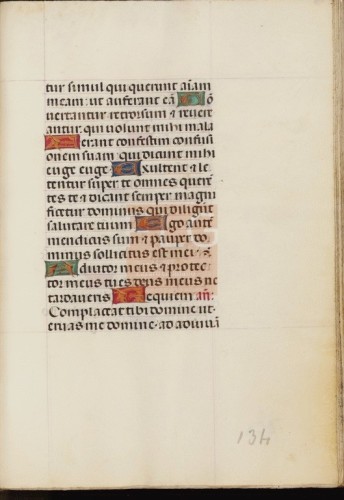 tur simul qui querunt aīam
meam: ut auferant eā Cō
vertantur retrorsum & rever
antur. qui volunt mihi mala
Ferant confestim confusi
onem suam: qui dicunt mihi
euge euge Exultent & le
tentur super te omnes quere͂
tes te & dicant semper magni
ficetur dominus qui diligu͂t
salutare tuum Ego aute͂
mendicus sum & pauper do
minus sollicitus est mei &
Adiutor meus & protec
tor meus tu es deus meus ne
tardaveris Requiem añ:
Complaceat tibi domine ut
erias me domine ad adiuvā
134